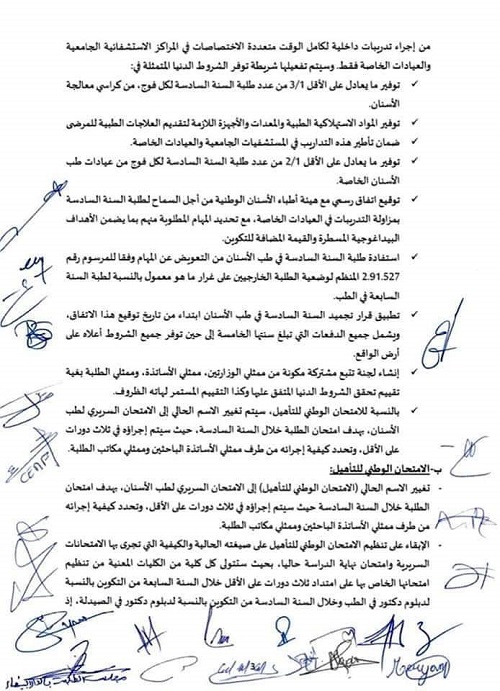 من إجراء تدريبات داخلية لكامل الوقت متعددة الاختصاصات في المراكز الاستشفائية الجامعية
والعيادات الخاصة فقط. وسيتم تفعيلها شريطة توفر الشروط الدنيا المتمثلة في:
✓ توفير ما يعادل على الأقل 3/1 من عدد طلبة السنة السادسة لكل فوج، من كراسي معالجة
الأسنان.
✓ توفير المواد الاستهلاكية الطبية والمعدات والأجهزة اللازمة لتقديم العلاجات الطبية للمرضى
✓ ضمان تأطير هذه التداريب في المستشفيات الجامعية والعيادات الخاصة.
✓ توفير ما يعادل على الأقل 2/1 من عدد طلبة السنة السادسة لكل فوج من عيادات طب
الأسنان الخاصة.
✓ توقيع اتفاق رسمي مع هيئة أطباء الأسنان الوطنية من أجل السماح لطلبة السنة السادسة
بمزاولة التدريبات في العيادات الخاصة، مع تحديد المهام المطلوبة منهم بما يضمن الأهداف
البيداغوجية المسطرة والقيمة المضافة للتكوين.
✓ استفادة طلبة السنة السادسة في طب الأسنان من التعويض عن المهام وفقا للمرسوم رقم
2.91.527 المنظم لوضعية الطلبة الخارجيين على غرار ما هو معمول بالنسبة لطبة السنة
السابعة في الطب.
✓ تطبيق قرار تجميد السنة السادسة في طب الأسنان ابتداء من تاريخ توقيع هذا الاتفاق،
ويشمل جميع الدفعات التي تبلغ سنتها الخامسة إلى حين توفر جميع الشروط أعلاه على
أرض الواقع.
✓ إنشاء لجنة تتبع مشتركة مكونة من ممثلي الوزارتين، ممثلي الأساتذة، وممثلي الطلبة بغية
تقييم تحقق الشروط الدنيا المتفق عليها وكذا التقييم المستمر لهاته الظروف.
✓ بالنسبة للامتحان الوطني للتأهيل، سيتم تغيير الاسم الحالي إلى الامتحان السريري لطب
الأسنان، بهدف امتحان الطلبة خلال السنة السادسة، حيث سيتم إجراؤه في ثلاث دورات
على الأقل، وتحدد كيفية إجرائه من طرف ممثلي الأساتذة الباحثين وممثلي مكاتب الطلبة.
ب-الامتحان الوطني للتأهيل:
- تغيير الاسم الحالي (الامتحان الوطني للتأهيل) إلى الامتحان السريري لطب الأسنان، بهدف امتحان
الطلبة خلال السنة السادسة حيث سيتم إجراؤه في ثلاث دورات على الأقل، وتحدد كيفية إجرائه
من طرف ممثلي الأساتذة الباحثين وممثلي مكاتب الطلبة.
- الإبقاء على تنظيم الامتحان الوطني للتأهيل على صيغته الحالية والكيفية التي تجرى بها الامتحانات
السريرية وامتحان نهاية الدراسة حاليا، بحيث ستتولى كل كلية من الكليات المعنية من تنظيم
امتحانها الخاص بها على امتداد ثلاث دورات على الأقل خلال السنة السابعة من التكوين بالنسبة
لدبلوم دكتور في الطب وخلال السنة السادسة من التكوين بالنسبة لدبلوم دكتور في الصيدلة، إذ